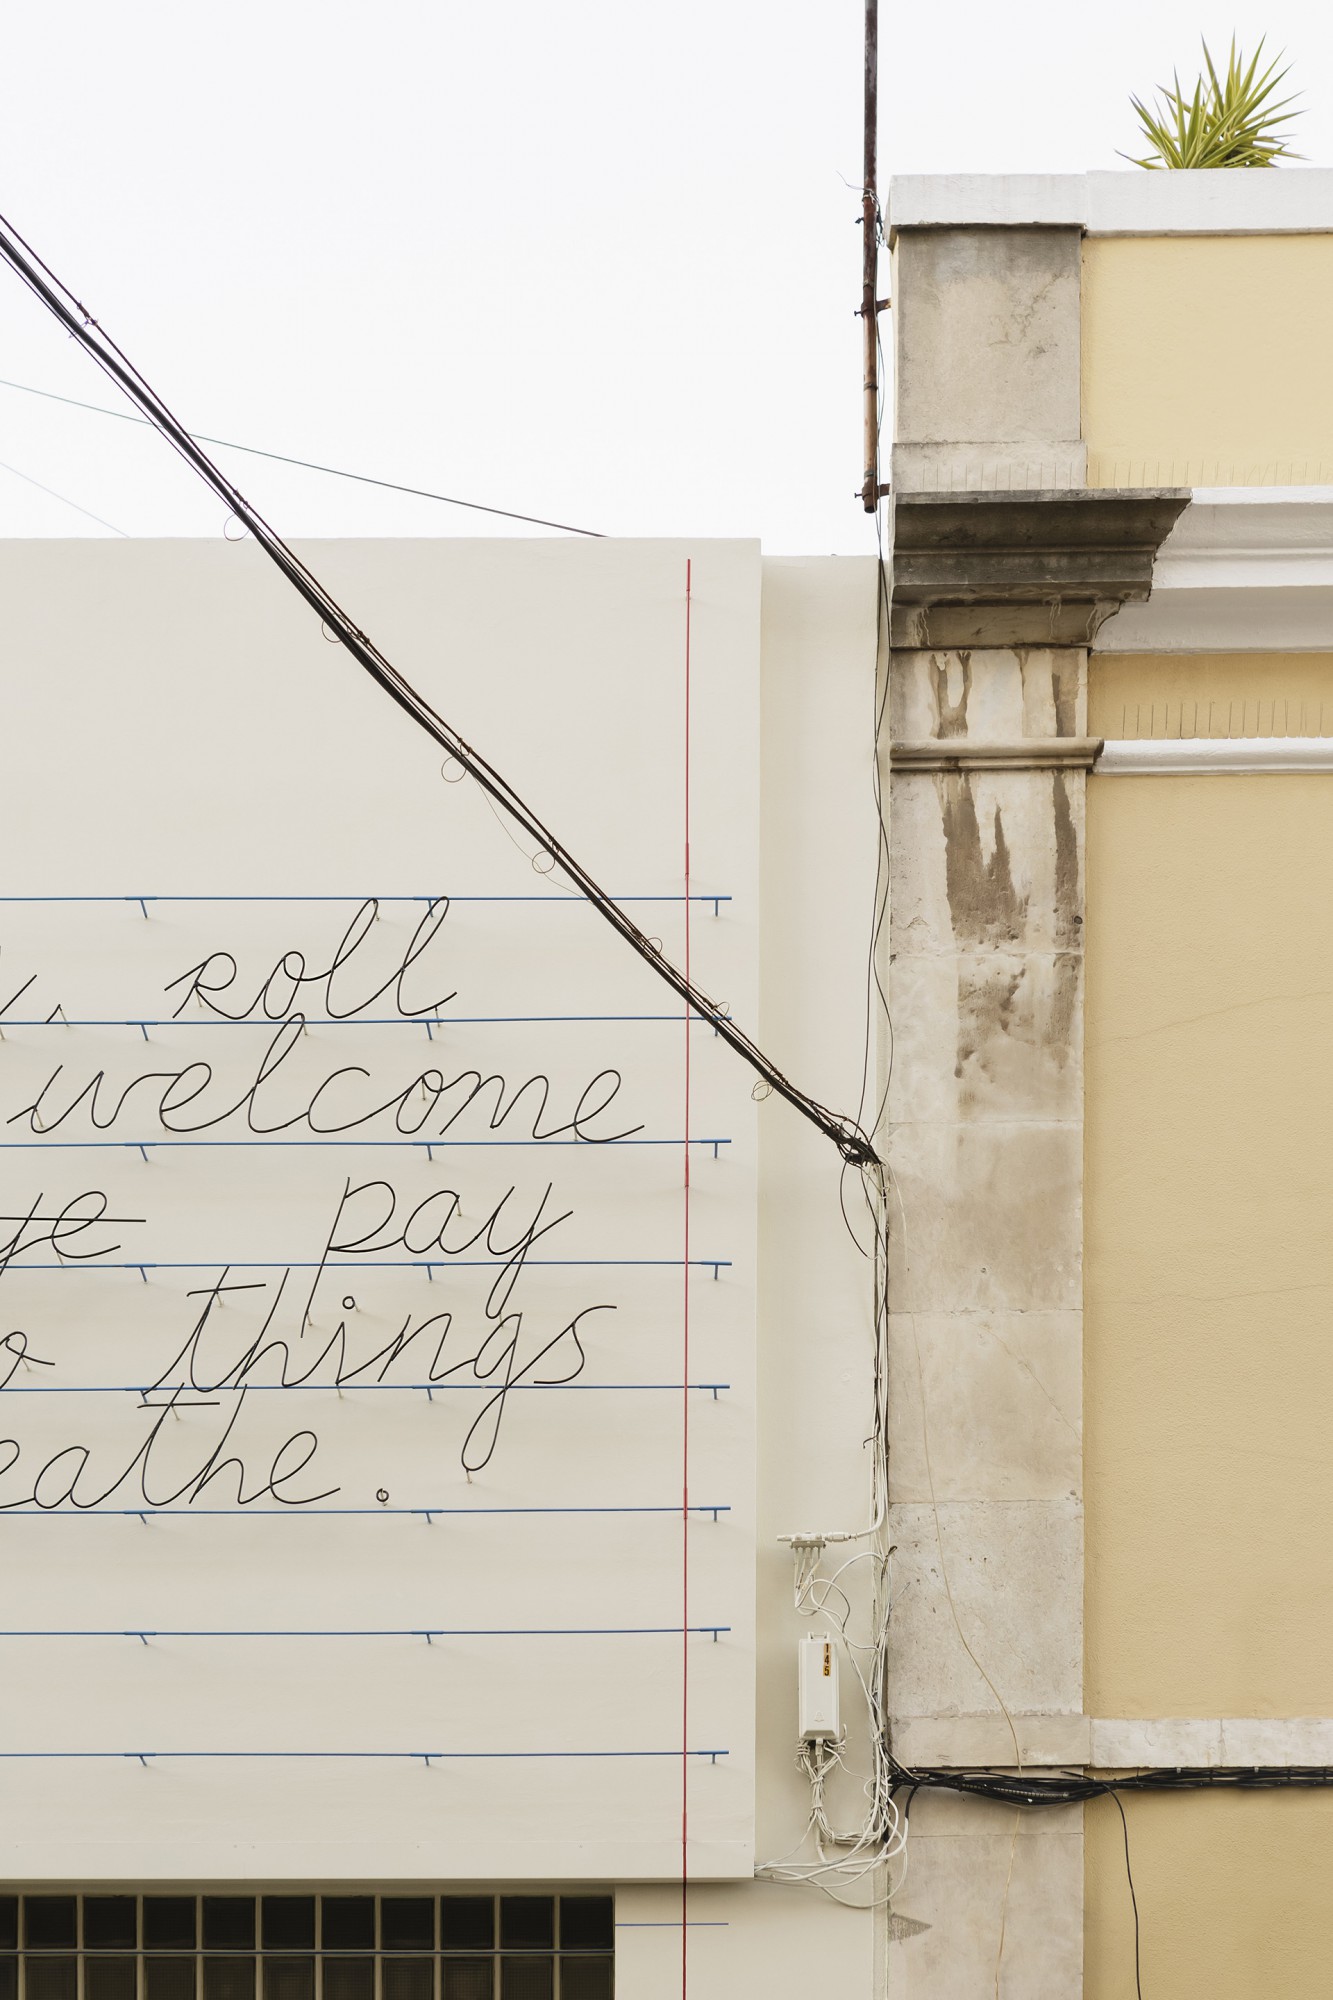 roll
welcome
pay
things
145